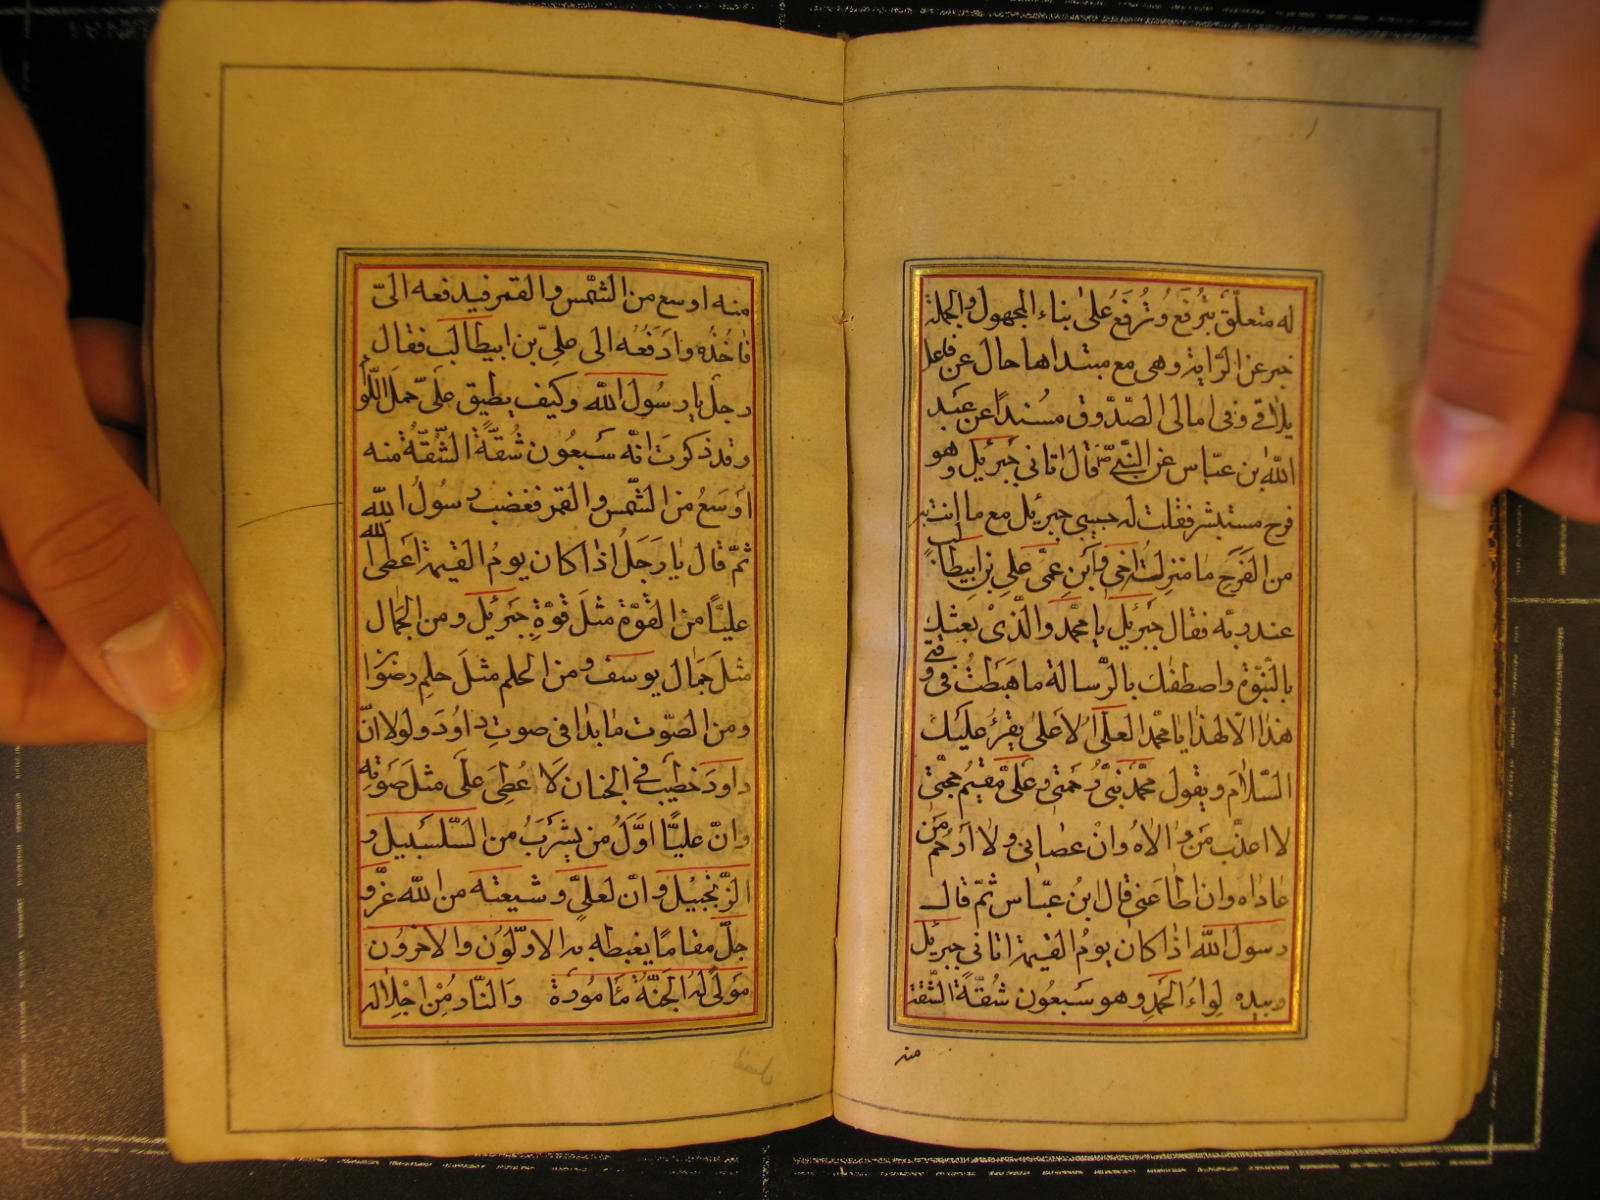 له متعلّق بتُرفَع وتُرفَع على بناء المجهول والجملة
خبر عن الرّاية وهى مع مبتداها حال عن فاعل
يلاقى وفى امالى الصّدوق مسُنداً عن عَبد
الله بن عبّاس عن النّبىّ ص قال اتانى جَبرئيل وهو
فرح مستبشر فقلت له حبيبى جبرئيل مع ما انت فيه
من الفَرَحِ ما منزلت اخى وَابنِ عمّى علىّ بن ابيطالب
عند ربّه فقال جبرئيل يا محمّد والّذى بعثك
بالنّبوّة واصطفاك بالرّسالة ما هَبَطتُ فى وقتى
هذا الّا لهذا يا محمّد العلىّ الاعلى يقرءُ عليك
السّلام ويقول محمّد نبىّ رحمتى وعلىّ مقيم حجّتى
لا اعذّب مَن والاهُ وانْ عصانى ولا ارحم مَن
عاداه وان اطاعنى قال ابنُ عبّاس ثمّ قال
رسول الله اذا كان يومُ القيمة اتانى جبرئيل
وبيده لِواءُ الحَمدِ وهو سَبعُون شُقّةً الشّقة
منه
منه اوسع من الشمّس والقمر فيدفعه الىّ
فاخُذُه وادَفَعُه الى علىّ بن ابيطالب فقال
رجل يا رسُول الله وكيف يطيق علىّ حمل اللّواء
وقد ذكرت انّه سَبعُون شُقّةً الشُّقّةُ منه
اوَسَعُ من الشمّس والقمر فغضب رسُولُ الله
ثمّ قال يا رَجلُ اذا كان يومُ القيمة اعَطى الله
عليّاً من القوّة مثلَ قوّةِ جبرئيل ومن الجَمال
مثلَ جَمال يوسف ومن الحلم مثلَ حلمِ رضوَا
ومن الصّوت ما يدانى صوتِ داوُد ولولا انّ
داودَ خطيب فى الجنان لا عُطِىَ علىّ مثلَ صَوتِه
وانّ عليّاً اوّلُ من يشرَبُ من السّلسَبيل و
الزّنجبيل وانّ لعلىٍّ وشيعته من الله عزّو
جلّ مقاماً يغبطه به الاوّلوُن والاخروُن
مَولىً لَهُ الجَنّةُ مَامُورَة وَالنّار مُِن اجْلِاله